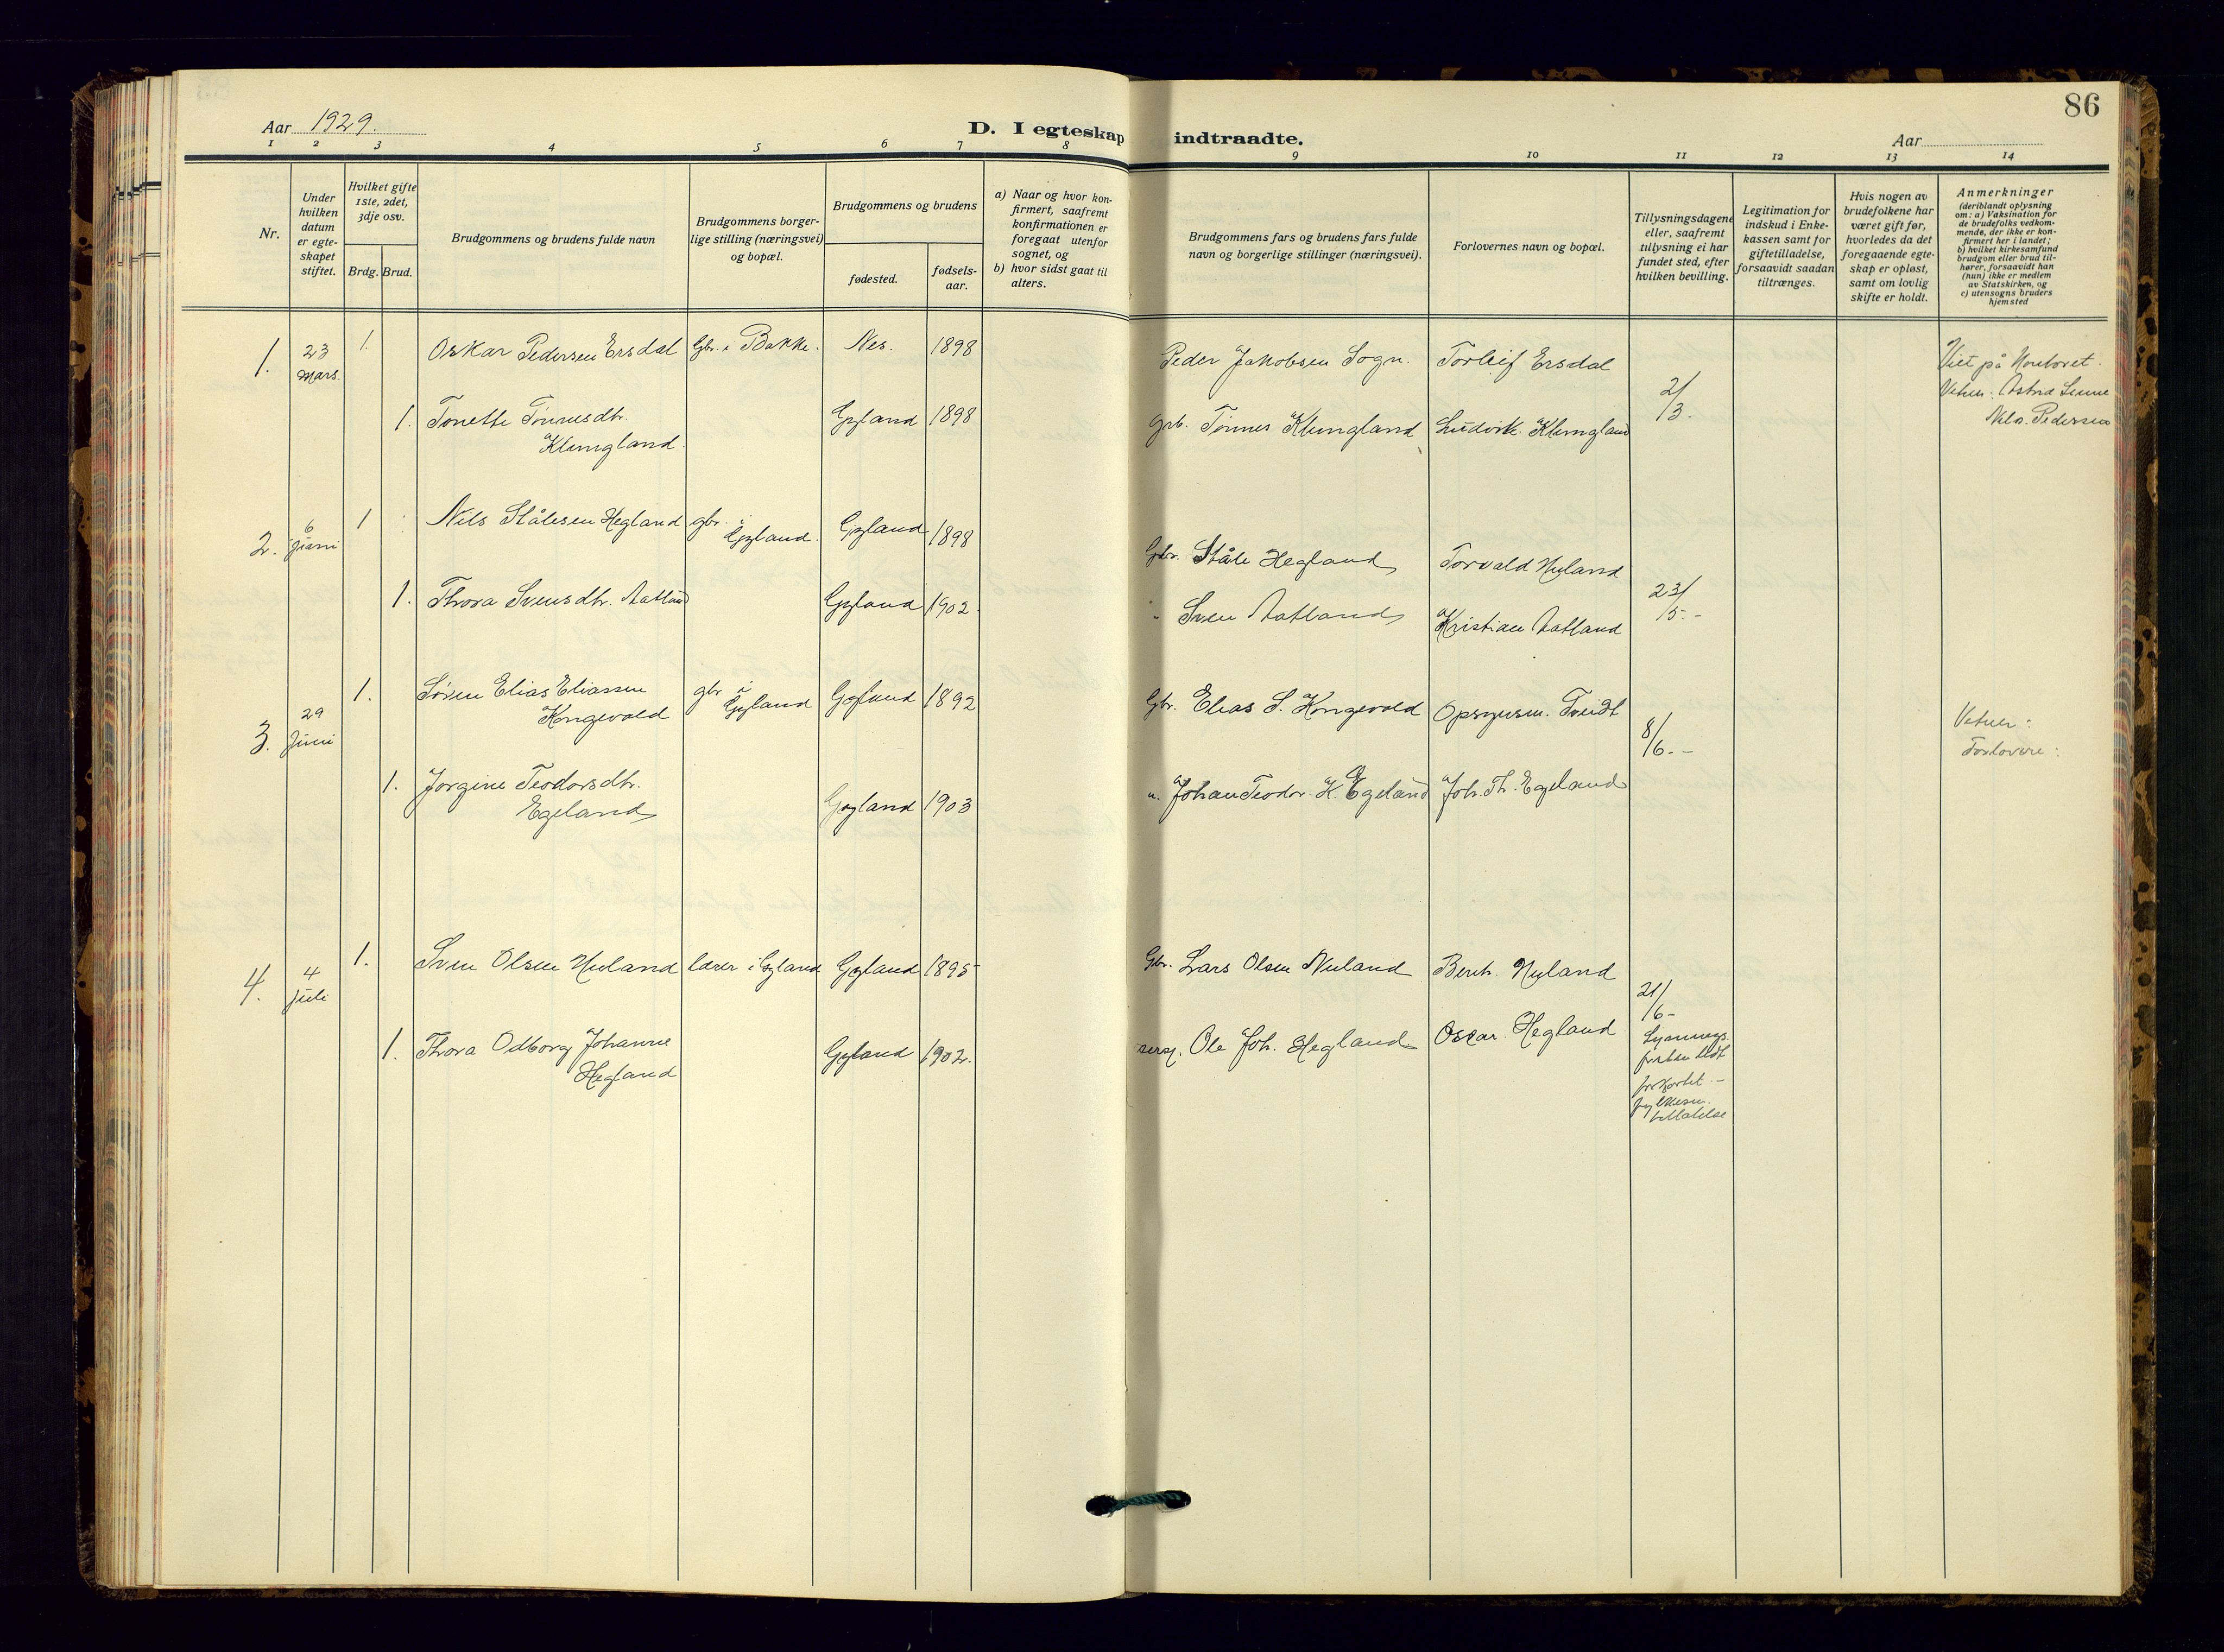 86
Aar 1929.
D. I egteskap indtraadte.
Aar
1 2 3 4 5 6 7 8 9 10 11 12 13 14
Nr.
Under
hvilken
datum
er egte-
skapet
stiftet.
Hvilket gifte
1ste, 2det,
3dje osv.
Brdg. Brud.
Brudgommens og brudens fulde navn
Brudgommens borger-
lige stilling (næringsvei)
og bopæl.
Brudgommens og brudens
fødested.
fødsels-
aar.
a) Naar og hvor kon-
firmert, saafremt
konfirmationen er
foregaat utenfor
sognet, og
b) hvor sidst gaat til
alters.
Brudgommens fars og brudens fars fulde
navn og borgerlige stillinger (næringsvei).
Forlovernes navn og bopæl.
Tillysningsdagene
eller, saafremt
tillysning ei har
fundet sted, efter
hvilken bevilling.
Legitimation for
indskud i Enke-
kassen samt for
giftetilladelse,
forsaavidt saadan
tiltrænges.
Hvis nogen av
brudefolkene har
været gift før,
hvorledes da det
foregaaende egte-
skap er opløst,
samt om lovlig
skifte er holdt.
Anmerkninger
(deriblandt oplysning
om: a) Vaksination for
de brudefolks vedkom-
mende, der ikke er kon-
firmert her i landet;
b) hvilket kirkesamfund
brudgom eller brud til-
hører, forsaavidt han
(hun) ikke er medlem
av Statskirken, og
c) utensogns bruders
hjemsted
1. 23 Mars. 1. Oskar Pedersen Ersdal Gbr. i Bakke. Nes. 1898 Peder Jakobsen Sogn. Torleif Ersdal
2/3.
Viet på Kontoret.
Vitner: Astrid
Pedersen
1. Tonette Tønnesdtr.
Klungland. Gyland 1898 grb. Tønnes Klungland Ludvik. Klungland
2. 6 Juni 1 Nils Stålesen Hegland gbr. i
Gyland. Gyland 1898 Gbr. Ståle Hegland Torvald Nuland
23/5.-
1. Thora Svensdtr. Aatland Gyland 1902. " Sven Aatland Kristian Aatland
3. 29 Juni 1. Søren Elias Eliassen
Kongevold gbr i
Gyland Gyland 1892 Gbr. Elias S. Kongevold Opsynsm. Tveidt
8/6.-
Vitner:
Forlovere:
1. Jorgine Teodorsdtr.
Egeland Gyland 1903 ". Johan Teodor. H. Egeland Joh. Th. Egeland
4. 4 Juli 1. Sven Olsen Nuland lærer i Gyland Gyland 1895 Gbr. Lars Olsen Nuland Bernh. Nuland
21/6-
Lysnings
fristen blit
forkortet -
fylkesm.
tillatelse
1. Thora Odborg Johanne
Hegland Gyland 1902. Ole Joh. Hegland Oscar Hegland